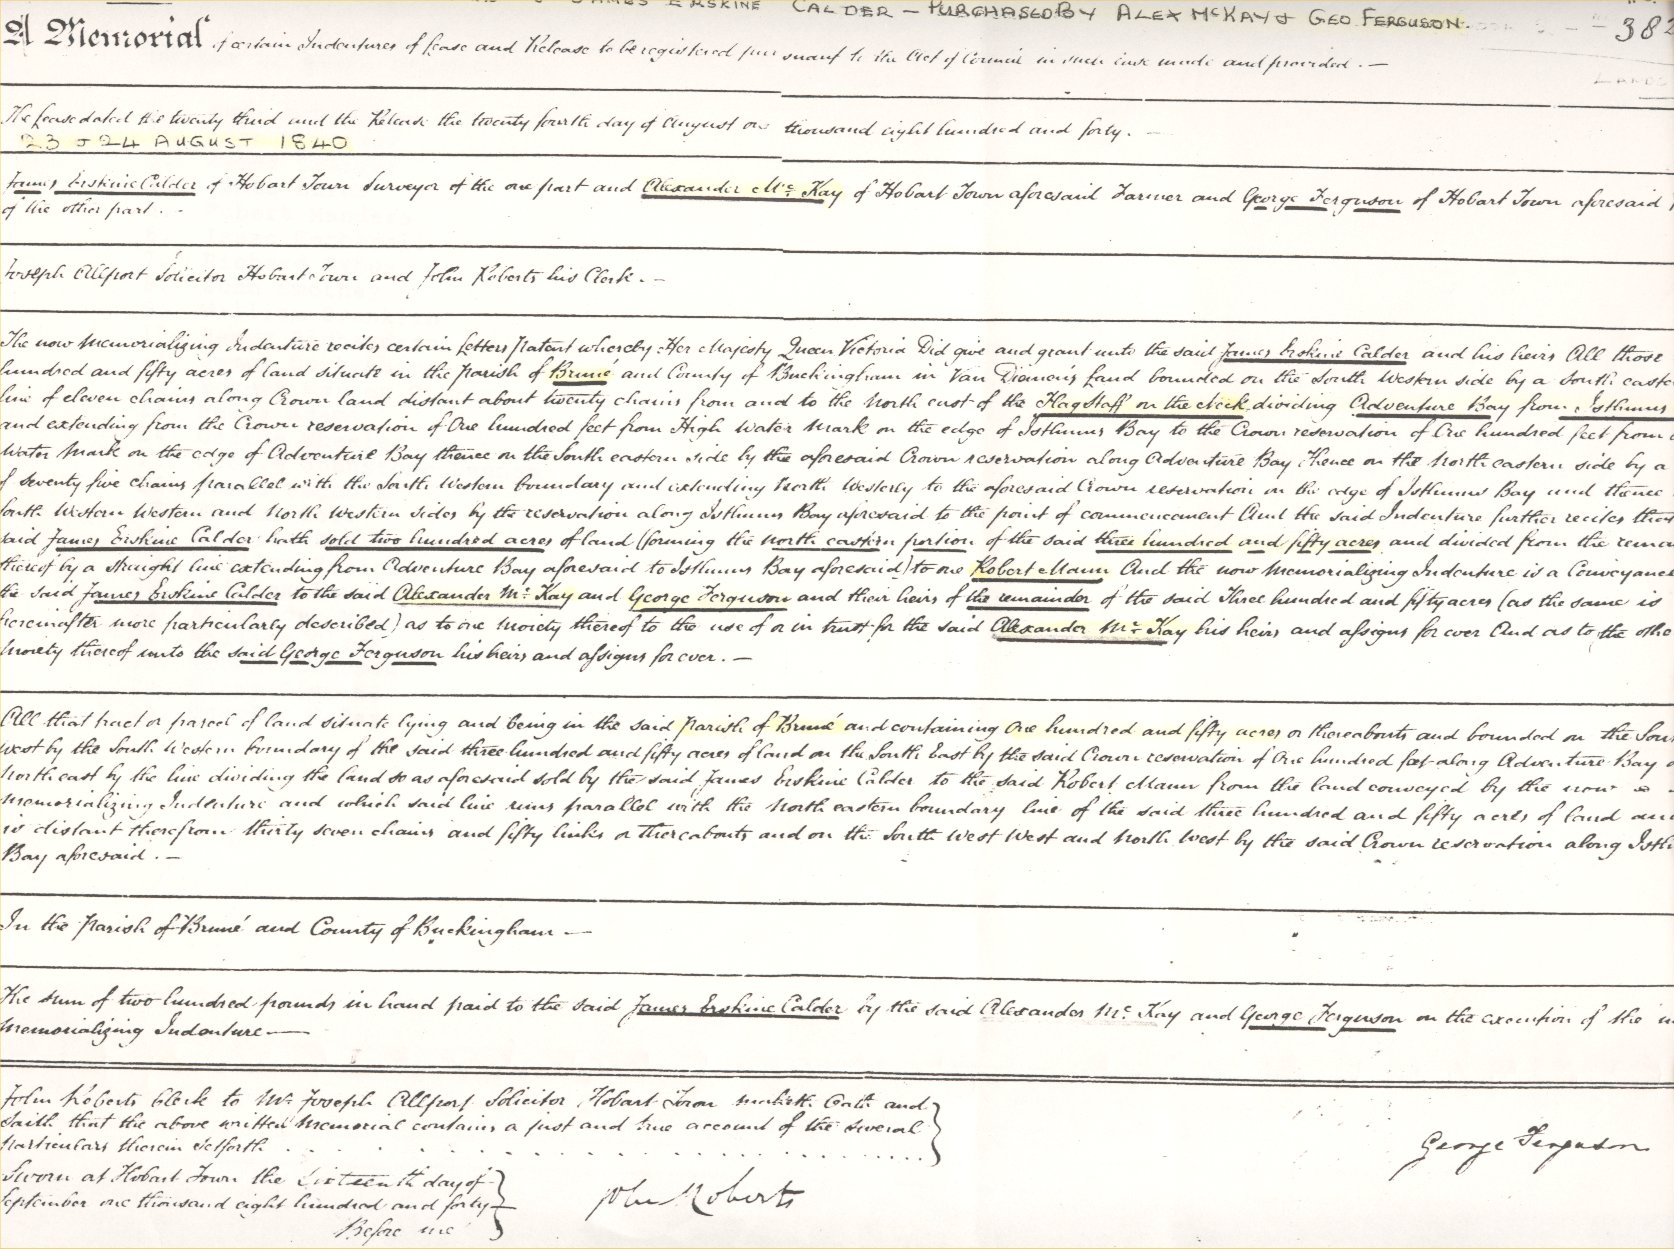 JAMES ERSKINE CALDER – PURCHASED BY ALEX McKAY & GEO. FERGUSON.
382
A Memorial of certain Indentures of Lease and Release to be registered pursuant to the Act of Council in such case made and provided. —
The Lease dated the twenty third and the Release the twenty fourth day of August one thousand eight hundred and forty. —
23 & 24 AUGUST 1840
James Erskine Calder of Hobart Town Surveyor of the one part and Alexander Mc Kay of Hobart Town aforesaid Farmer and George Ferguson of Hobart Town aforesaid
of the other part. -
Joseph Allport Solicitor Hobart Town and John Roberts his Clerk. —
The now Memorializing Indenture recites certain Letters Patent whereby Her Majesty Queen Victoria Did give and grant unto the said James Erskine Calder and his heirs All those
hundred and fifty acres of land situate in the Parish of Bruné and County of Buckingham in Van Diemen's Land bounded on the South Western side by a South easte
line of eleven chains along Crown land distant about twenty chains from and to the North east of the Flagstaff on the Neck dividing Adventure Bay from Isthmus
and extending from the Crown reservation of One hundred feet from High Water Mark on the edge of Isthmus Bay to the Crown reservation of One hundred feet from
Water Mark on the edge of Adventure Bay thence on the South eastern side by the aforesaid Crown reservation along Adventure Bay thence on the North eastern side by a
of seventy five chains parallel with the South Western boundary and extending North Westerly to the aforesaid Crown reservation on the edge of Isthmus Bay and thence
South Western Western and North Western sides by the reservation along Isthmus Bay aforesaid to the point of commencement And the said Indenture further recites that
said James Erskine Calder hath sold two hundred acres of land (forming the north eastern portion of the said three hundred and fifty acres and divided from the remai
thereof by a straight line extending from Adventure Bay aforesaid to Isthmus Bay aforesaid) to one Robert Mann And the now Memorializing Indenture is a Conveyance
the said James Erskine Calder to the said Alexander Mc Kay and George Ferguson and their heirs of the remainder of the said Three hundred and fifty acres (as the same is
hereinafter more particularly described) as to one Moiety thereof to the use of or in trust for the said Alexander Mc Kay his heirs and assigns for ever And as to the othe
Moiety thereof unto the said George Ferguson his heirs and assigns for ever. —
All that tract or parcel of land situate lying and being in the said Parish of Bruné and containing One hundred and fifty acres or thereabouts and bounded on the Sou
west by the South Western boundary of the said three hundred and fifty acres of land on the South East by the said Crown reservation of One hundred feet along Adventure Bay
North east by the line dividing the land so as aforesaid sold by the said James Erskine Calder to the said Robert Mann from the land conveyed by the now
Memorializing Indenture and which said line runs parallel with the North eastern boundary line of the said three hundred and fifty acres of land and
is distant therefrom thirty seven chains and fifty links or thereabouts and on the South West West and North West by the said Crown reservation along Isth
Bay aforesaid. —
In the Parish of Bruné and County of Buckingham —
The sum of two hundred pounds in hand paid to the said James Erskine Calder by the said Alexander Mc Kay and George Ferguson on the execution of the
Memorializing Indenture —
John Roberts Clerk to Mr Joseph Allport Solicitor Hobart Town maketh Oath and
saith that the above written Memorial contains a just and true account of the several
particulars therein setforth
Sworn at Hobart Town the Sixteenth day of
September one thousand eight hundred and forty
Before me
John Roberts
George Ferguson